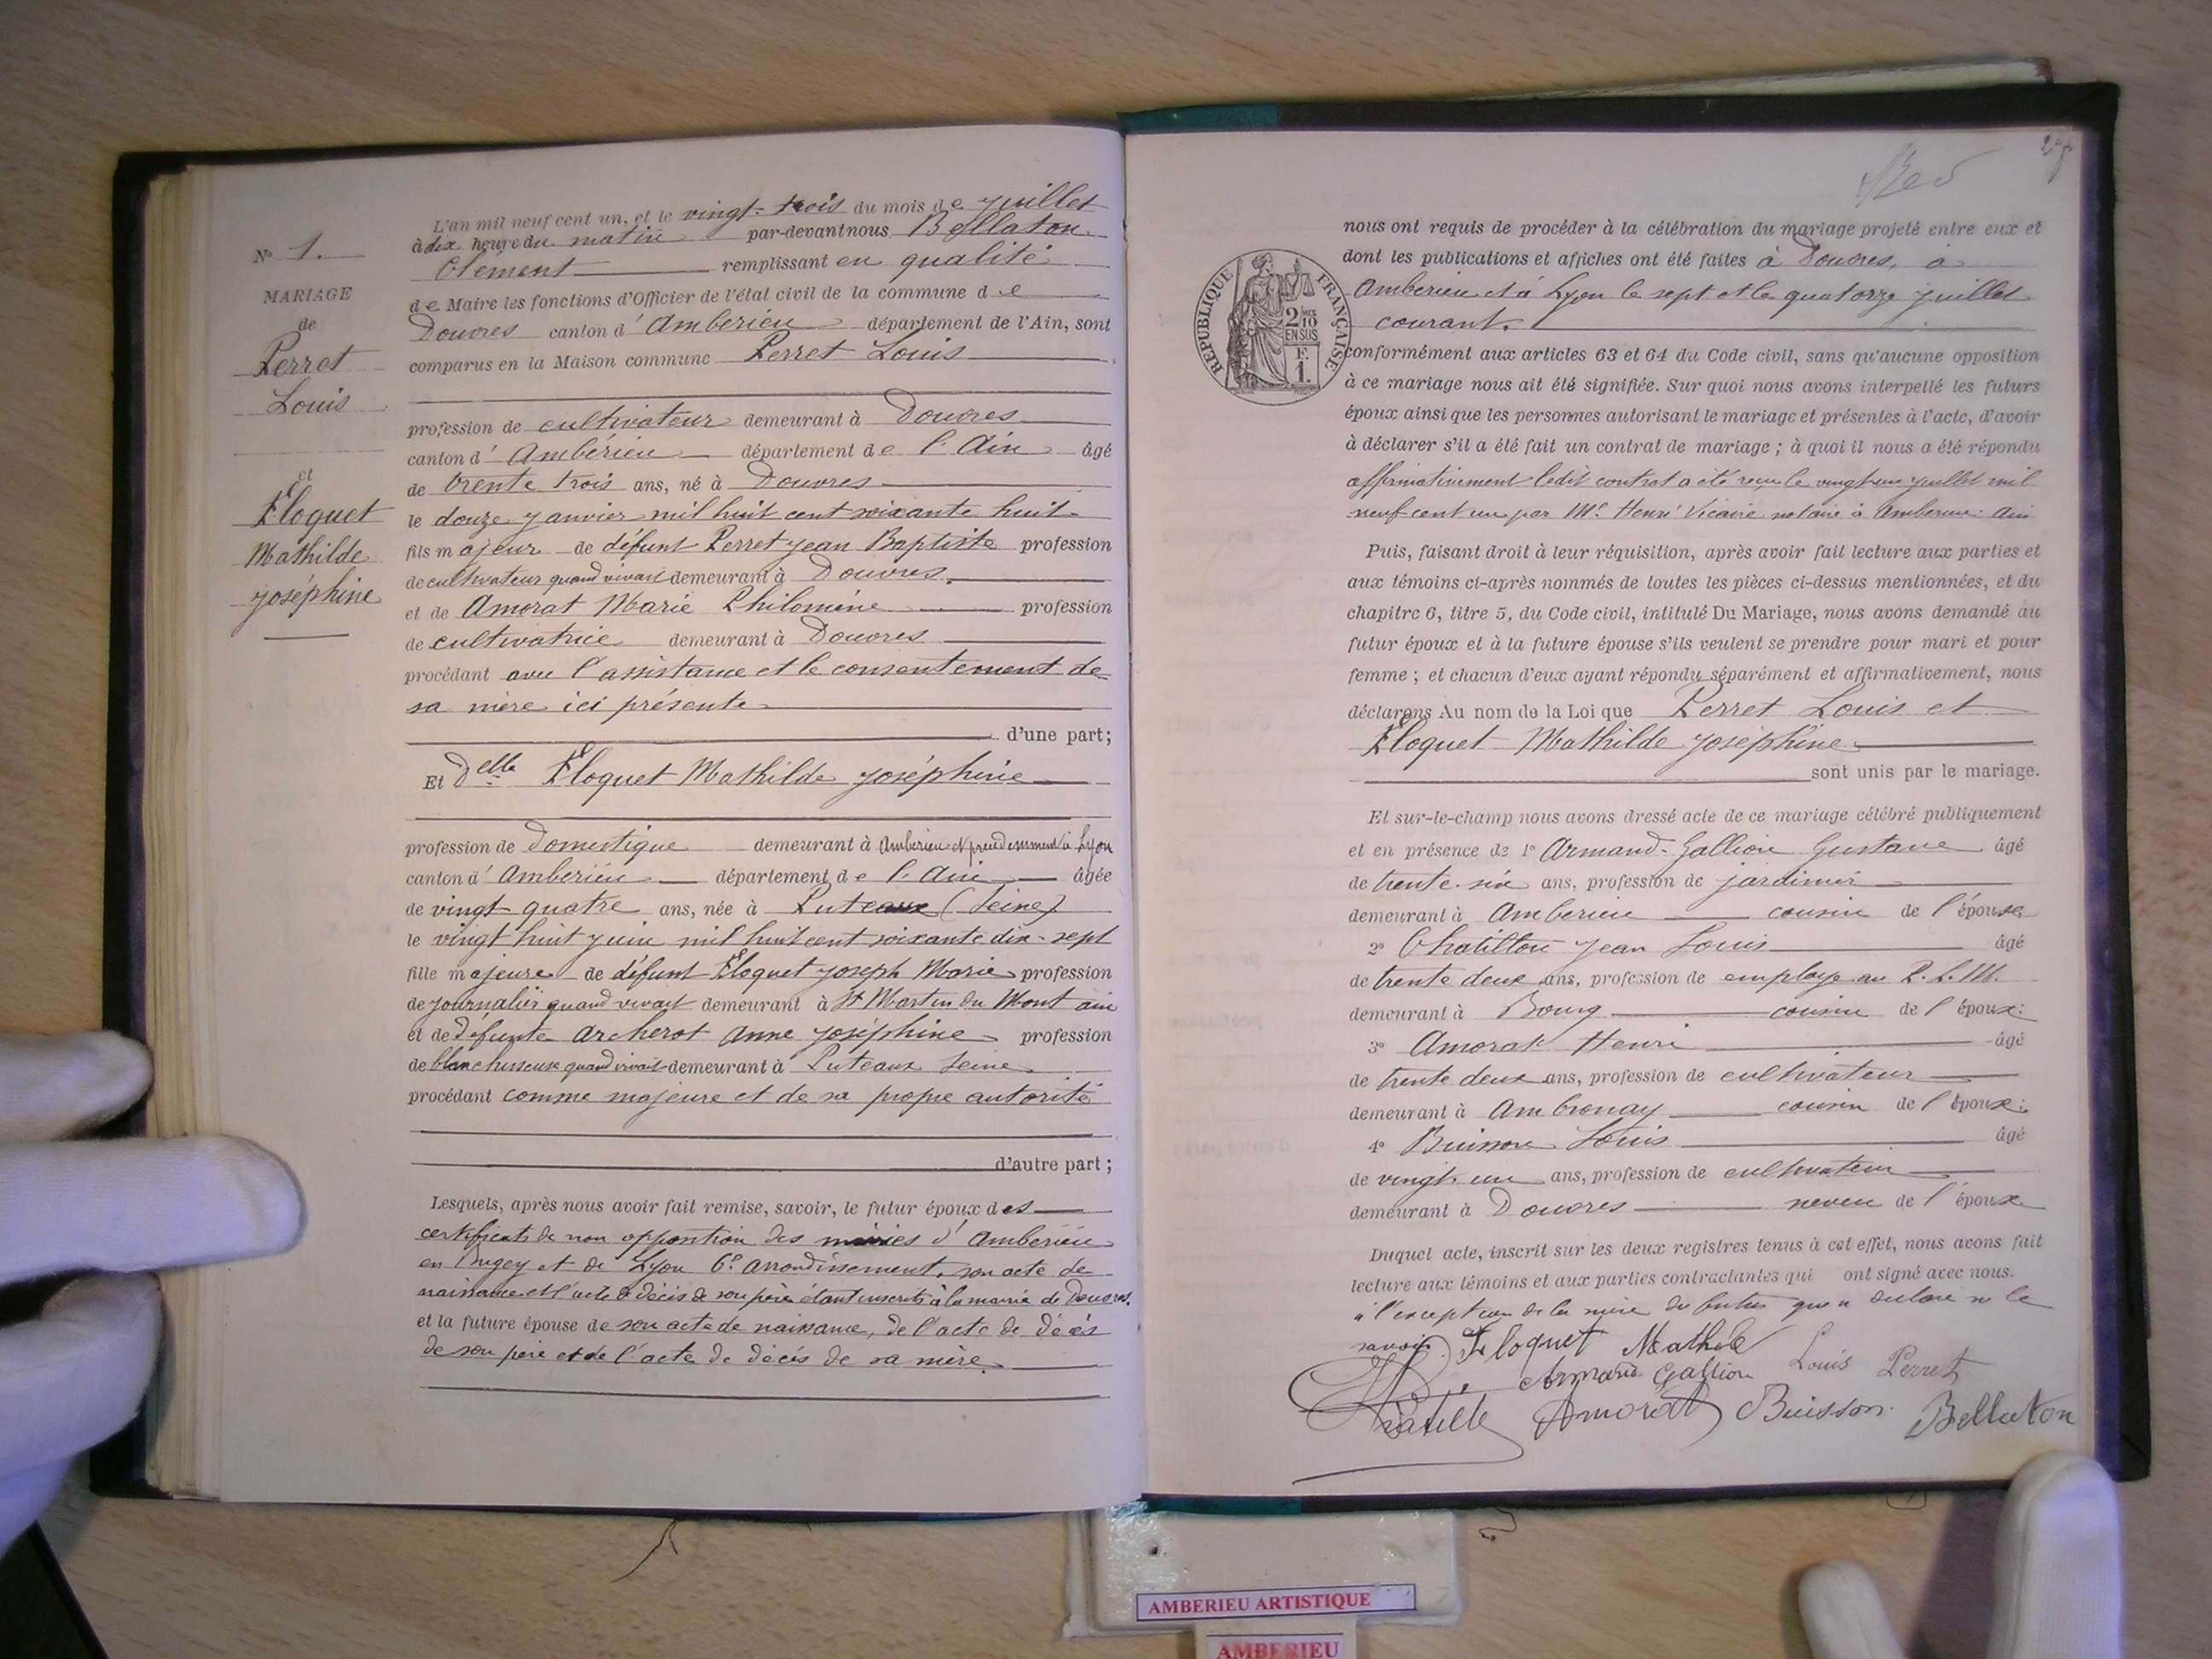 N° 1.
MARIAGE
de
Perret
Louis
et
Floquet
Mathilde
Joséphine
L'an mil neuf cent un, et le vingt-trois du mois de juillet
à dix heure du matin par-devant nous Bellaton
Clément remplissant en qualité
de Maire les fonctions d'Officier de l'état civil de la commune de
Douvres canton d'Ambérieu département de l'Ain, sont
comparus en la Maison commune Perret Louis
profession de cultivateur demeurant à Douvres
canton d'Ambérieu département de l'Ain âgé
de trente trois ans, né à Douvres
le douze janvier mil huit cent soixante huit
fils majeur de défunt Perret Jean Baptiste profession
de cultivateur quand vivait demeurant à Douvres
et de Amorat Marie Philomène profession
de cultivatrice demeurant à Douvres
procédant avec l'assistance et le consentement de
sa mère ici présente
d'une part;
Et Delle Floquet Mathilde Joséphine
profession de domestique demeurant à Ambérieu et précédemment à Lyon
canton d'Ambérieu département de l'Ain âgée
de vingt quatre ans, née à Puteaux (Seine)
le vingt huit juin mil huit cent soixante dix-sept
fille majeure de défunt Floquet Joseph Marie profession
de journalier quand vivait demeurant à St Martin du Mont ain
et de défunte Archerot Anne Joséphine profession
de blanchisseuse quand vivait demeurant à Puteaux Seine
procédant comme majeure et de sa propre autorité
d'autre part;
Lesquels, après nous avoir fait remise, savoir, le futur époux des
certificats de non opposition des mairies d'Ambérieu
en Bugey et de Lyon 6e arrondissement, son acte de
naissance et l'acte de décès de son père étant inscrits à la mairie de Douvres.
et la future épouse de son acte de naissance, de l'acte de décès
de son père et de l'acte de décès de sa mère.
27
nous ont requis de procéder à la célébration du mariage projeté entre eux et
dont les publications et affiches ont été faites à Douvres, à
Ambérieu et à Lyon le sept et le quatorze juillet
courant.
RÉPUBLIQUE FRANÇAISE
2/10 EN SUS
F. 1.
conformément aux articles 63 et 64 du Code civil, sans qu'aucune opposition
à ce mariage nous ait été signifiée. Sur quoi nous avons interpellé les futurs
époux ainsi que les personnes autorisant le mariage et présentes à l'acte, d'avoir
à déclarer s'il a été fait un contrat de mariage; à quoi il nous a été répondu
affirmativement ledit contrat a été reçu le vingt un juillet mil
neuf cent un par Me Henri Vicaire notaire à Ambérieu. ain
Puis, faisant droit à leur réquisition, après avoir fait lecture aux parties et
aux témoins ci-après nommés de toutes les pièces ci-dessus mentionnées, et du
chapitre 6, titre 5, du Code civil, intitulé Du Mariage, nous avons demandé au
futur époux et à la future épouse s'ils veulent se prendre pour mari et pour
femme; et chacun d'eux ayant répondu séparément et affirmativement, nous
déclarons Au nom de la Loi que Perret Louis et
Floquet Mathilde Joséphine
sont unis par le mariage.
Et sur-le-champ nous avons dressé acte de ce mariage célébré publiquement
et en présence de 1° Armand-Gallion Gustave âgé
de trente-six ans, profession de jardinier
demeurant à Ambérieu cousin de l'épouse
2° Chatillon Jean Louis âgé
de trente deux ans, profession de employé au P.L.M.
demeurant à Bourg cousin de l'époux:
3° Amorat Henri âgé
de trente deux ans, profession de cultivateur
demeurant à Ambronay cousin de l'époux:
4° Buisson Louis âgé
de vingt-un ans, profession de cultivateur
demeurant à Douvres neveu de l'époux
Duquel acte, inscrit sur les deux registres tenus à cet effet, nous avons fait
lecture aux témoins et aux parties contractantes qui ont signé avec nous.
à l'exception de la mère du futur qui a déclaré ne le
savoir. Floquet Mathilde
Armand Gallion Louis Perret
Amorat Buisson Bellaton
AMBERIEU ARTISTIQUE
AMBERIEU